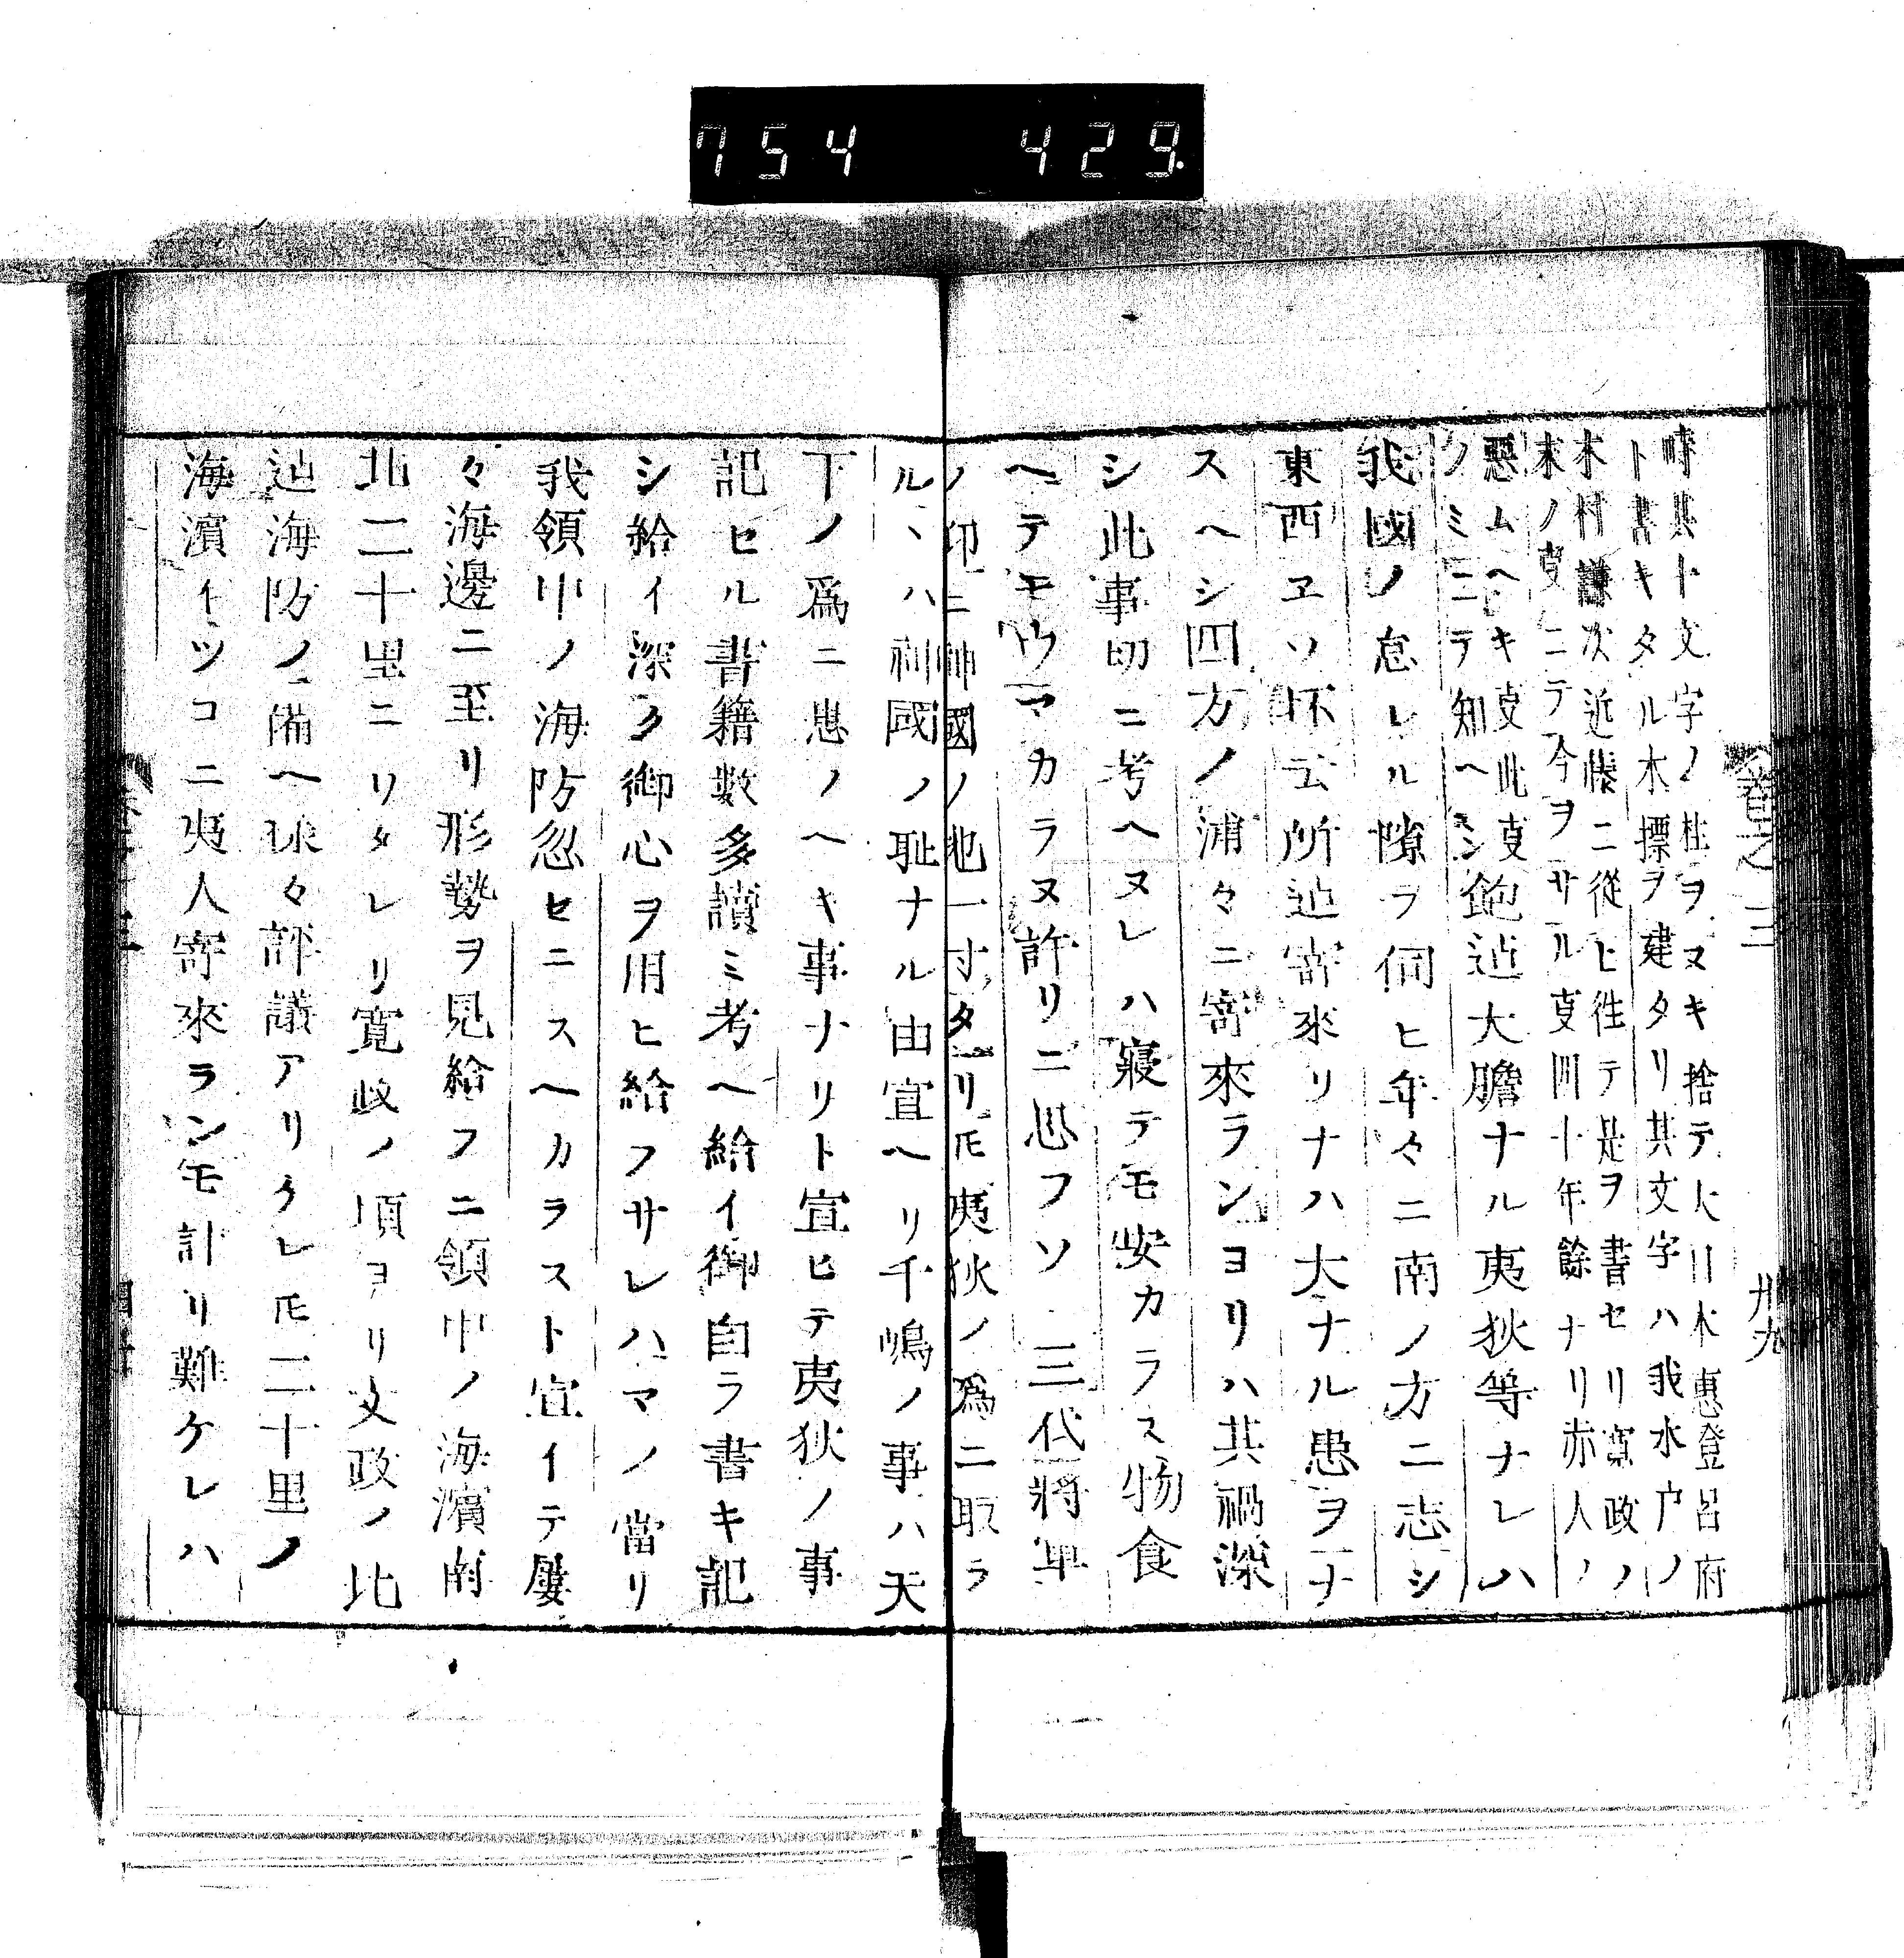 754 429
卷之三
卅九
時其ト文字ノ柱ヲヌキ捨テ大日本惠登呂府
ト書キタル木標ヲ建タリ其文字ハ我水户ノ
木村謙次近藤ニ從ヒ往テ是ヲ書セリ寛政ノ
末ノ叓ニテ今ヲサル叓四十年餘ナリ赤人ノ
惡ムヘキ叓此叓
ノミニテ知ヘシ飽迠大膽ナル夷狄等ナレハ
我國ノ怠レル隙ヲ伺ヒ年々ニ南ノ方ニ志シ
東西ヱソ抔云所迠寄來リナハ大ナル患ヲナ
スヘシ四方ノ浦々ニ寄來ランヨリハ其禍深
シ此事切ニ考ヘヌレハ寢テモ安カラス物食
ヘテモウマカラヌ許リニ思フソ三代將軍
ノ印ニ神國ノ地一寸タリ𪜈夷狄ノ爲ニ取ラ
ルヽハ神國ノ耻ナル由宣ヘリ千嶋ノ事ハ天
下ノ爲ニ患ノヘキ事ナリト宣ヒテ夷狄ノ事
記セル書籍數多讀ミ考ヘ給イ御自ラ書キ記
シ給イ深ク御心ヲ用ヒ給フサレハマノ當リ
我領中ノ海防忽セニスヘカラスト宣イテ屢
々海邊ニ至リ形勢ヲ見給フニ領中ノ海濱南
北二十里ニリタレリ寛政ノ頃ヨリ文政ノ比
迠海防ノ備ヘ球々評議アリタレ𪜈二十里ノ
海濱イツコニ夷人寄來ランモ計リ難ケレハ